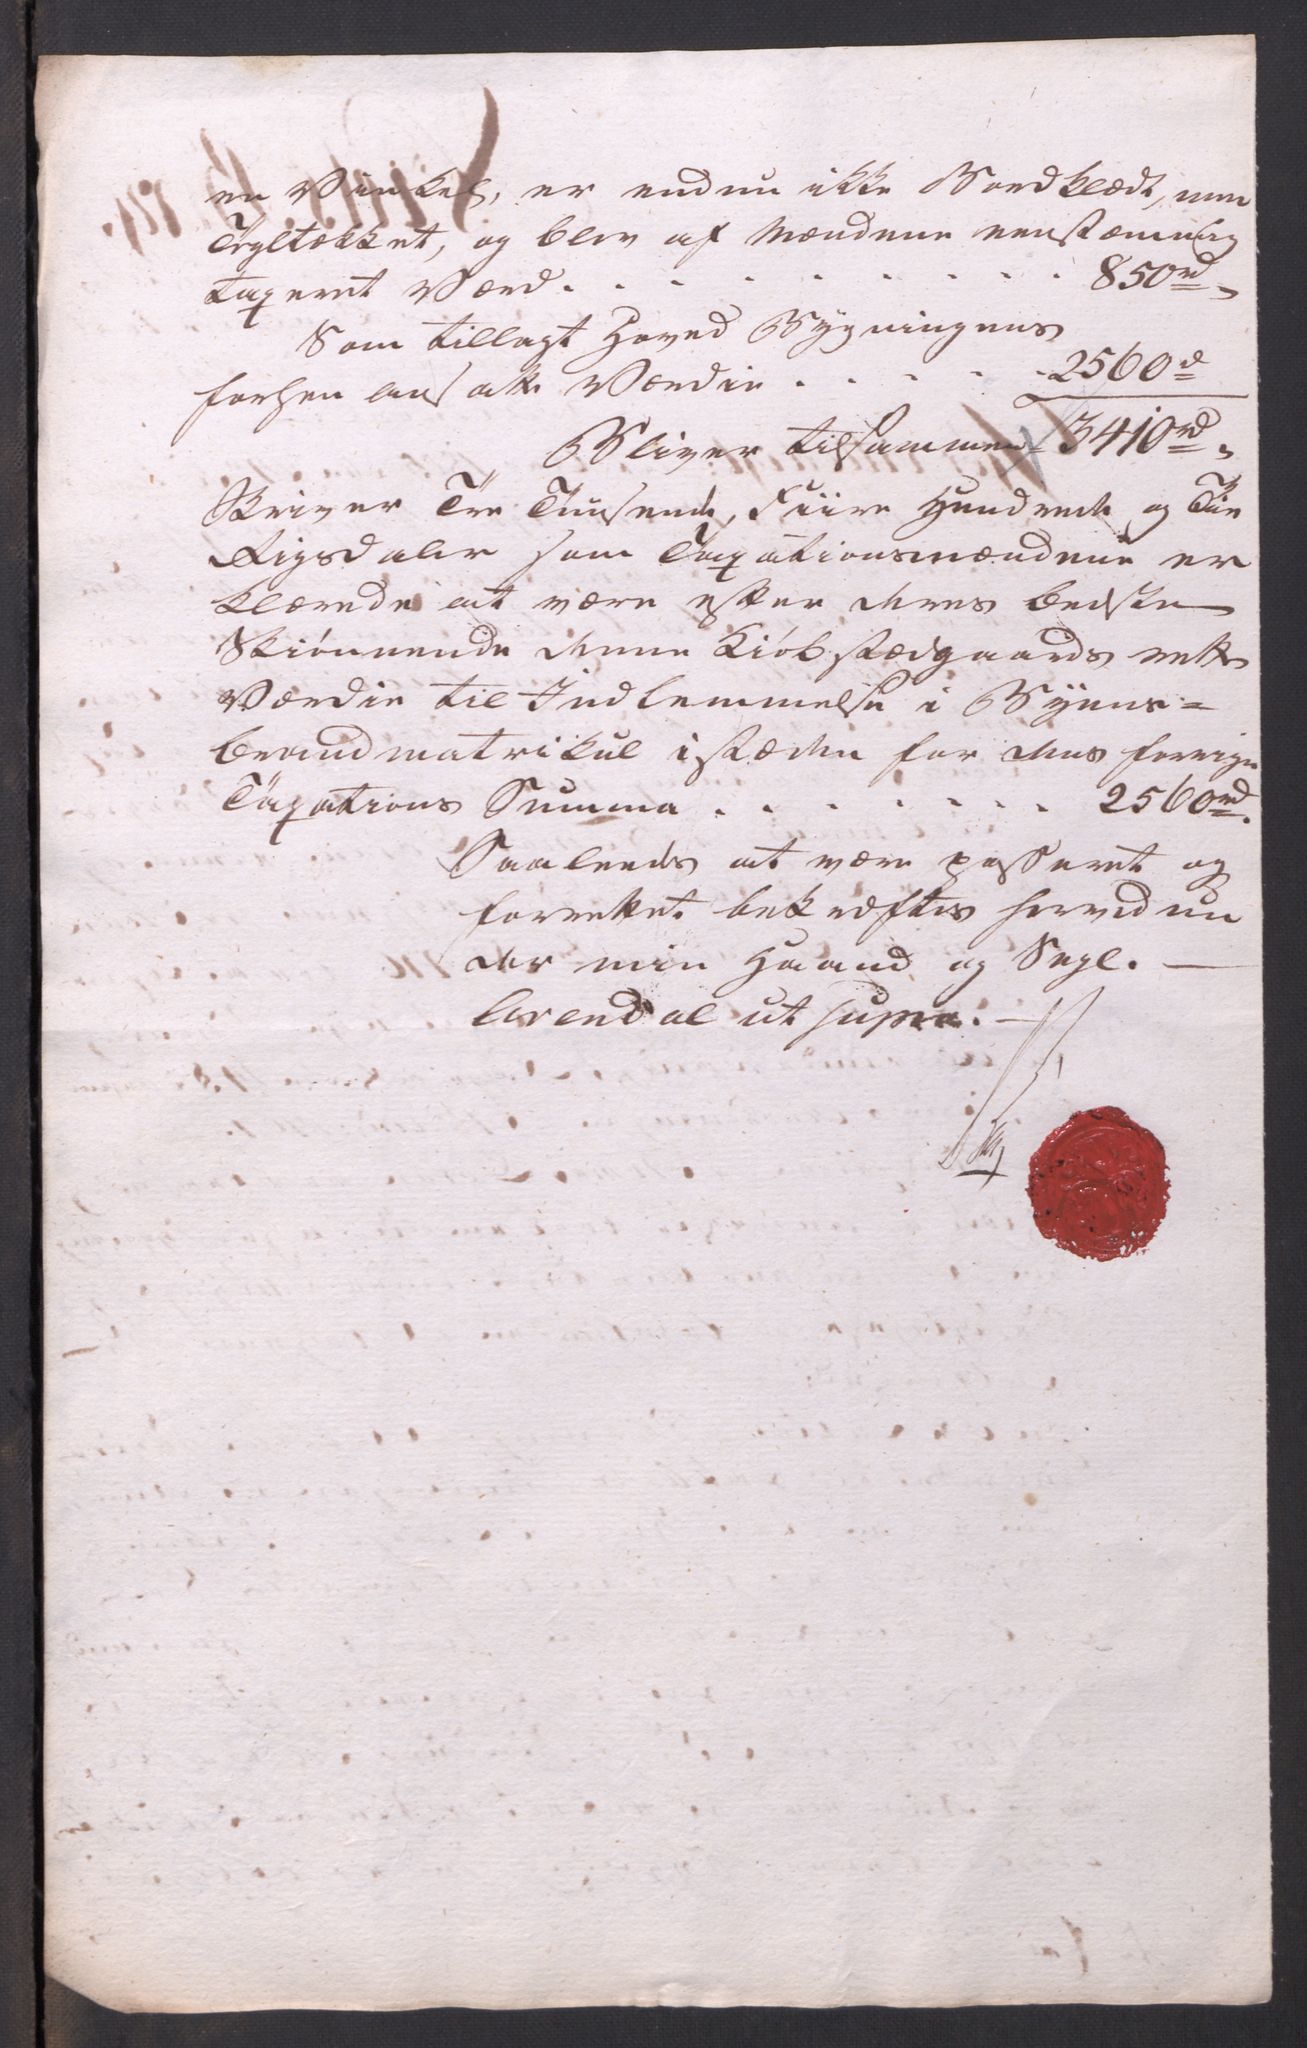 en Vinkel, er endnu ikke Bordklædt, men
Tegltækket, og blev af Mændene eenstæmmig
taxeret Værd . . . . . . . . . 850 rd
Som tillagt Hoved Bygningens
forhen ansatte Værdie . . . . . 2560 d
Bliver tilsammen 3410 rd
Skriver Tre Tusende, Fiire Hundrede og Tie
Rigsdaler som Taxationsmændene er
klærede at være efter deres beste
Skiønnende denne Kiøbstædgaards rette
Værdie til Indlemmelse i Byens=
brandmatrikul istæden for dens forrige
Taxations Summa . . . . . . . 2560 rd.
Saaleeds at være passeret og
forrettet bekræftes herved un
der min Haand og Segl. —
Arendal ut supra. —